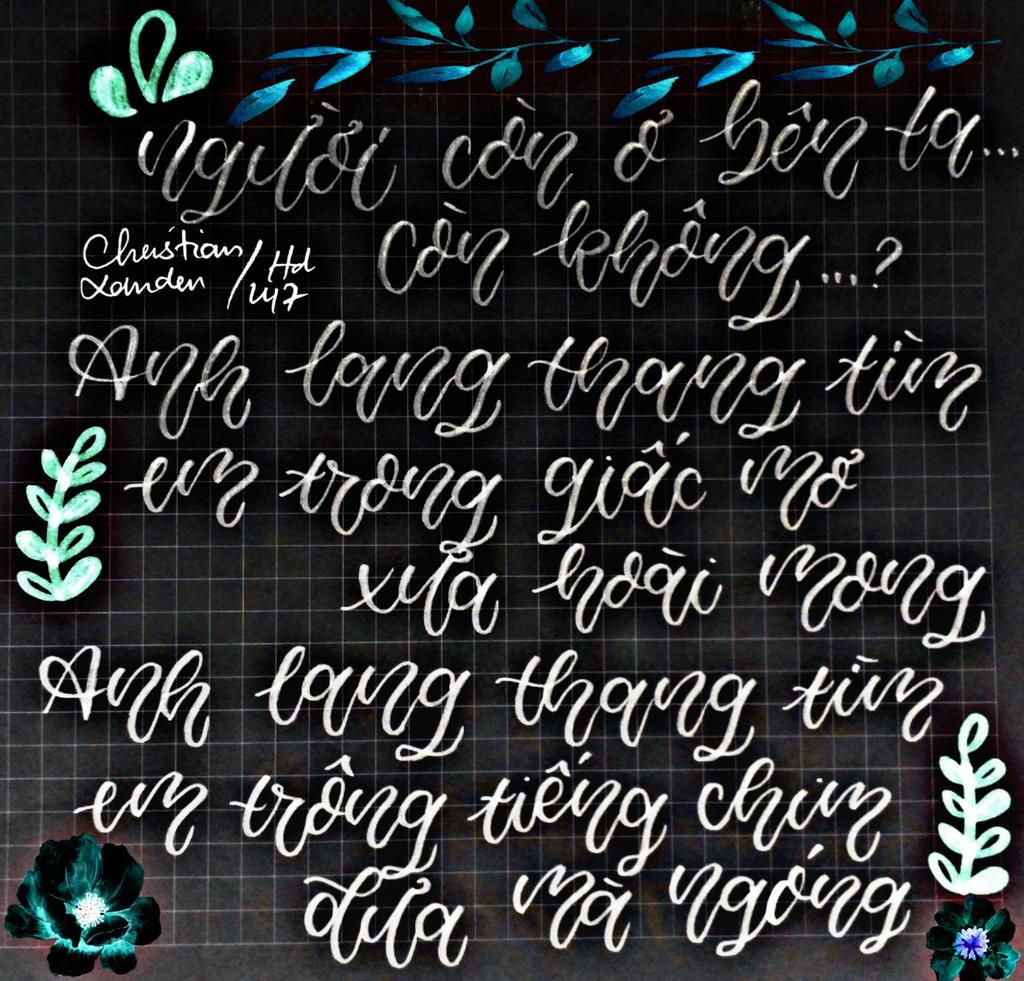 người còn ở bên ta...
còn không...?
Christian
Landen / Hd
247
Anh lang thang tìm
em trong giấc mơ
xưa hoài mong
Anh lang thang tìm
em trông tiếng chim
đưa mà ngóng